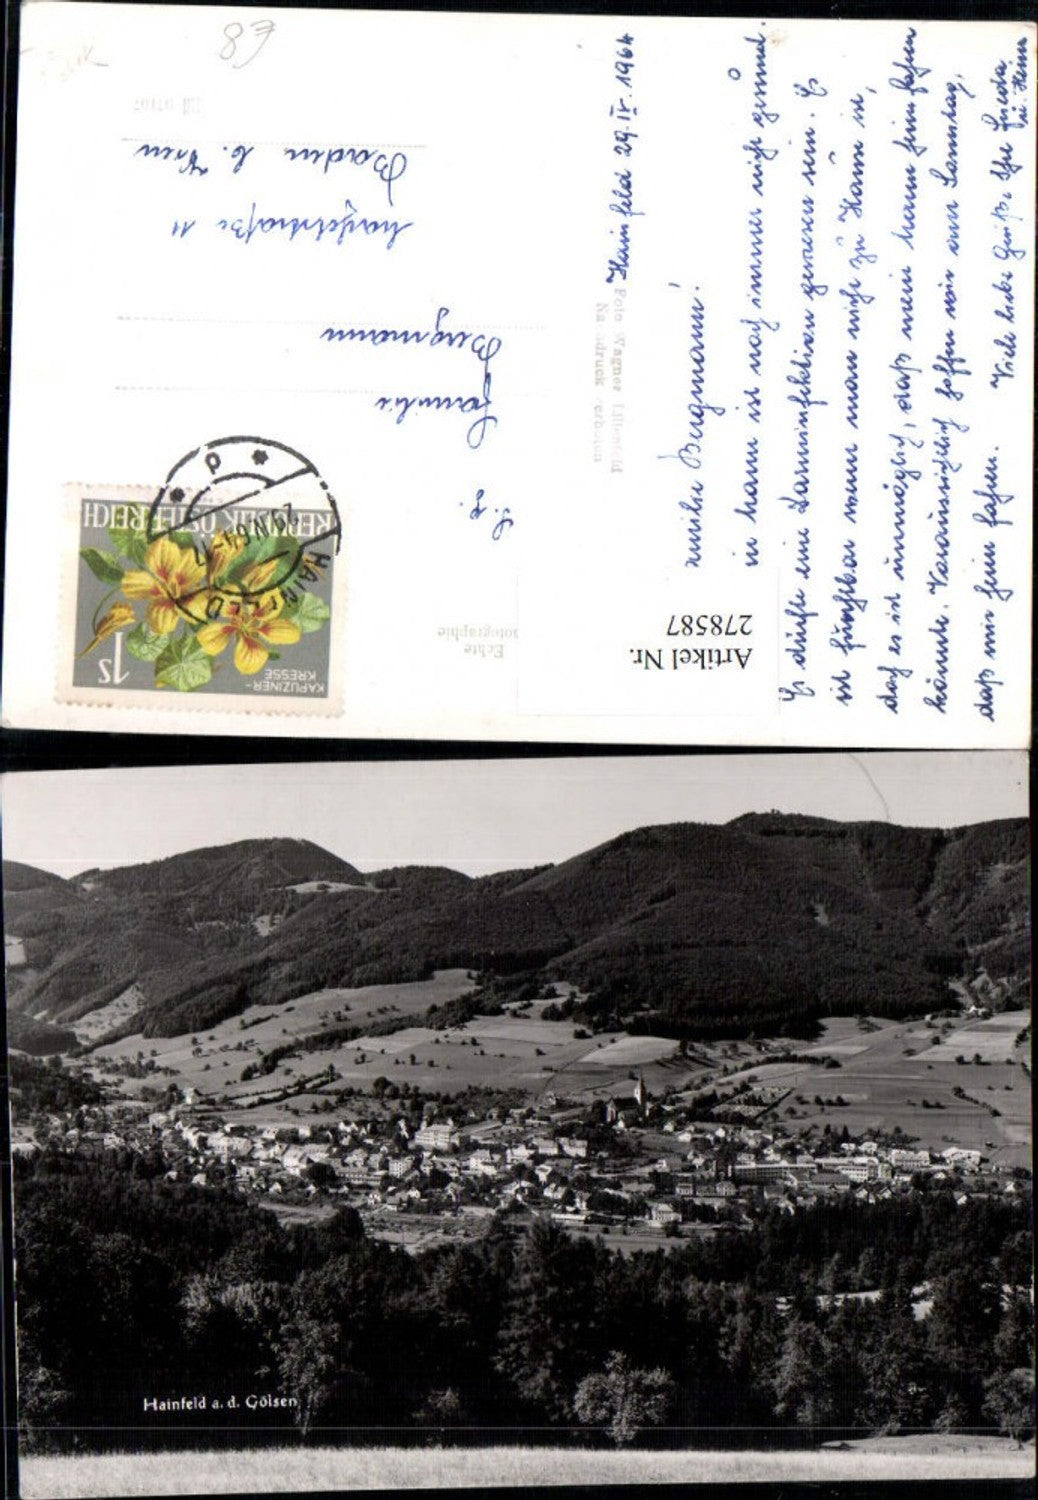 Hainfeld 29. IV. 1964
Familie Bergmann!
ist noch immer nicht gesund.
Es dürfte eine Darminfektion gewesen sein. Es
ist furchtbar wenn man nicht zu Hause ist,
doch es ist unmöglich, daß mein Mann heim fahren
könnte. Voraussichtlich hoffen wir am Samstag,
daß wir heim fahren. Viele liebe Grüße Ihre Frieda
u. Heini
Foto Wagner Lilienfeld
Nachdruck verboten
Familie
Bergmann
11
Baden b. Wien
€8
Echte
Photographie
Artikel Nr.
278587
REPUBLIK ÖSTERREICH
1S
KAPUZINER-
KRESSE
HAINFELD
29.IV.64
Hainfeld a. d. Gölsen